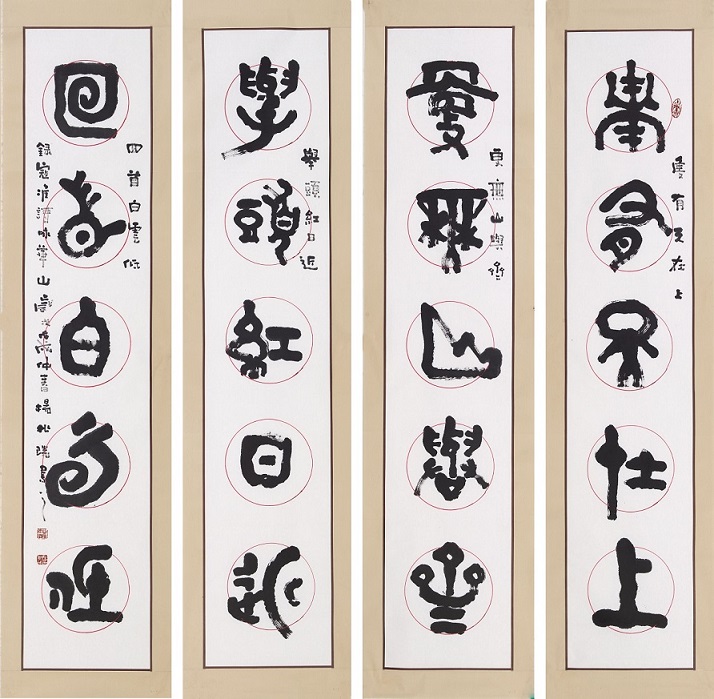 有天在上
有天在上
更無山與齊
更無山與齊
舉頭紅日近
舉頭紅日近
回首白雲低
回首白雲低
錄寇准詩咏華山歲戊戌仲春楊